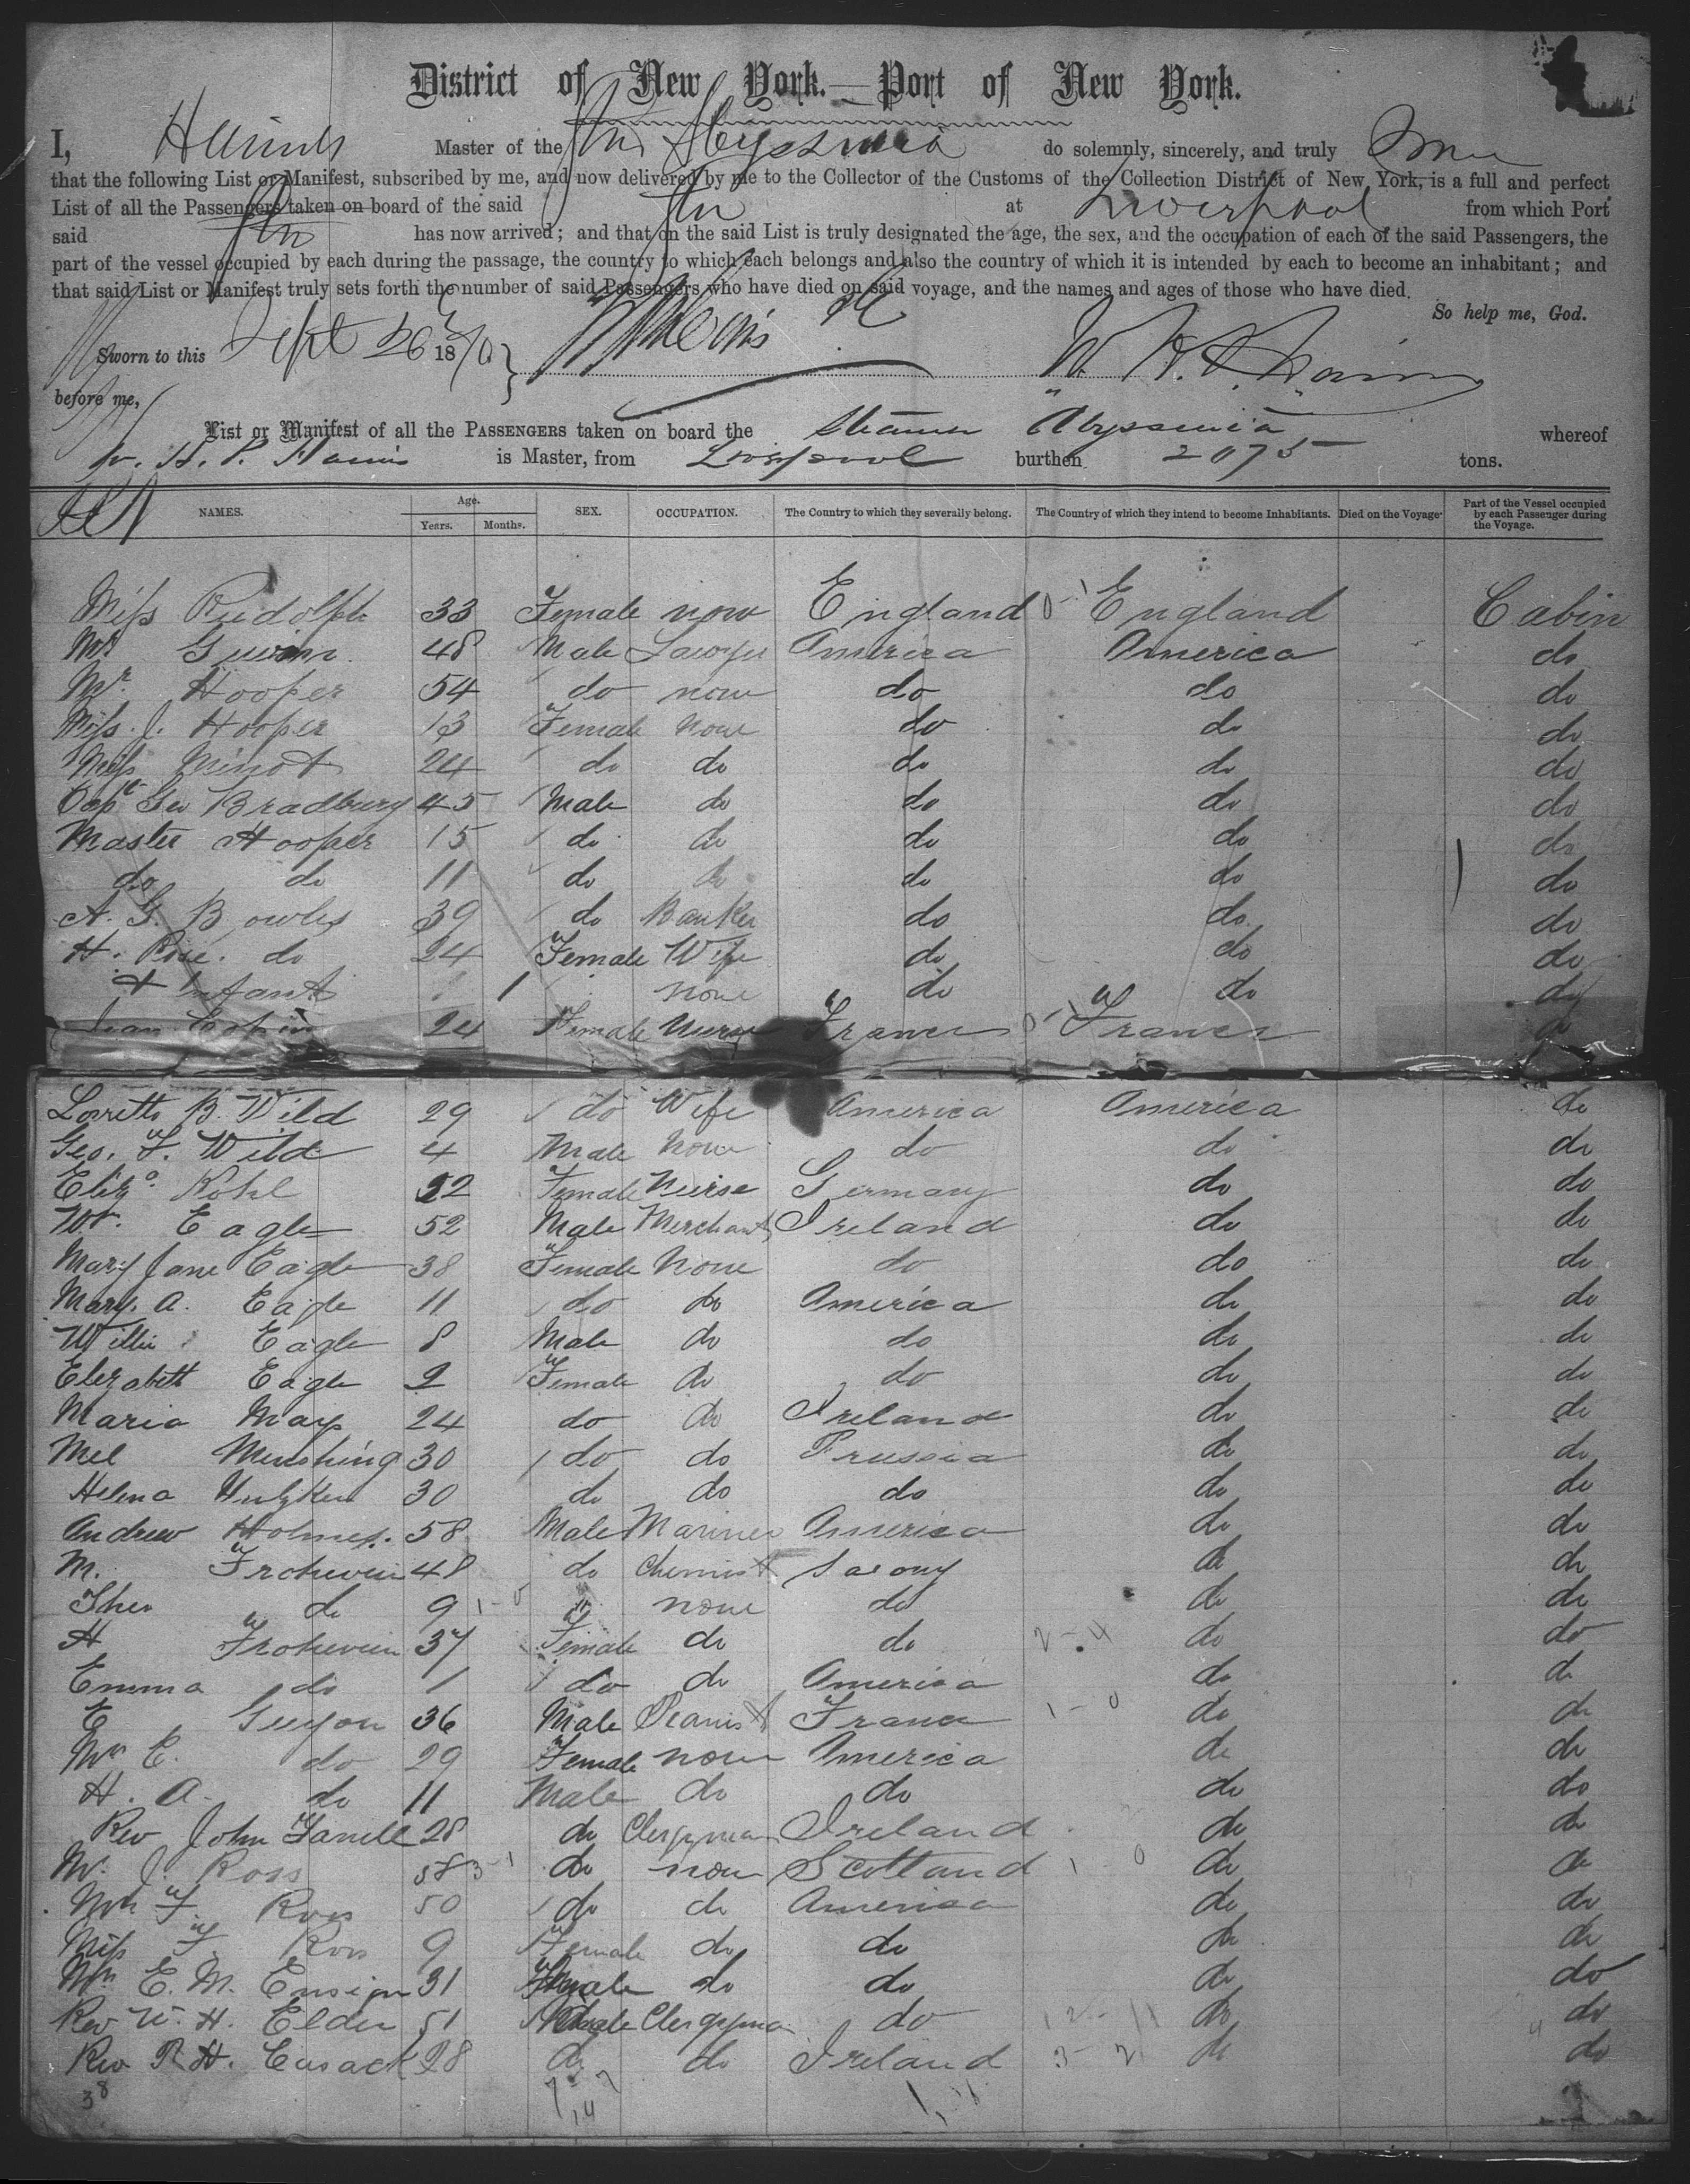 District of New York.—Port of New York.
I, Hains Master of the Str Abyssinia do solemnly, sincerely, and truly
that the following List or Manifest, subscribed by me, and now delivered by me to the Collector of the Customs of the Collection District of New York, is a full and perfect
List of all the Passengers taken on board of the said Str at Liverpool from which Port
said Str has now arrived; and that on the said List is truly designated the age, the sex, and the occupation of each of the said Passengers, the
part of the vessel occupied by each during the passage, the country to which each belongs and also the country of which it is intended by each to become an inhabitant; and
that said List or Manifest truly sets forth the number of said Passengers who have died on said voyage, and the names and ages of those who have died.
So help me, God.
Sworn to this Sept 26 1870
before me,
List or Manifest of all the PASSENGERS taken on board the Steamer Abyssinia whereof
W. H. P. Hains is Master, from Liverpool burthen 2075 tons.
NAMES. Age. Years. Months. SEX. OCCUPATION. The Country to which they severally belong. The Country of which they intend to become Inhabitants. Died on the Voyage Part of the Vessel occupied by each Passenger during the Voyage.
Miss Rudolph 33 Female none England England Cabin
Mr 48 Male Lawyer America America do
Mr. Hooper 54 do none do do do
Miss J. Hooper 13 Female none do do do
Miss Minot 24 do do do do do
Capt Geo Bradbury 45 Male do do do do
Master Hooper 15 do do do do do
do do 11 do do do do do
A. G. Bowles 39 do Banker do do do
H. Rose. do 24 Female Wife do do do
& Infant 1 none do do do
24 Female Nurse France France do
Loretto B. Wild 29 do Wife America America do
Geo. F. Wild 4 Male none do do do
Eliza Kohl 52 Female Nurse Germany do do
Wm. Eagle 52 Male Merchant Ireland do do
Mary Jane Eagle 38 Female None do do do
Mary. A. Eagle 11 do do America do do
Willie Eagle 8 Male do do do do
Elizabeth Eagle 2 Female do do do do
Maria Mays 24 do do Ireland do do
Mel Menshing 30 do do Prussia do do
Helena 30 do do do do do
Andrew Holmes. 58 Male Mariner America do do
M. Frohwein 48 do Chemist Saxony do do
Theo do 9 " none do do do
H Frohwein 37 Female do do do do
Emma do 1 do do America do do
E Guyon 36 Male Pianist France do do
Mrs E. do 29 Female none America do do
H. A. do 11 Male do do do do
Rev John Farrell 28 do Clergyman Ireland do do
Mr. J. Ross 58 do none Scotland do do
Mrs F. Ross 50 do do America do do
Miss F. Ross 9 Female do do do do
Mrs E. M. Ensign 31 Female do do do do
Rev W. H. Elder 51 Male Clergyman do do do
Rev R H. Cusack 28 do do Ireland do do
38